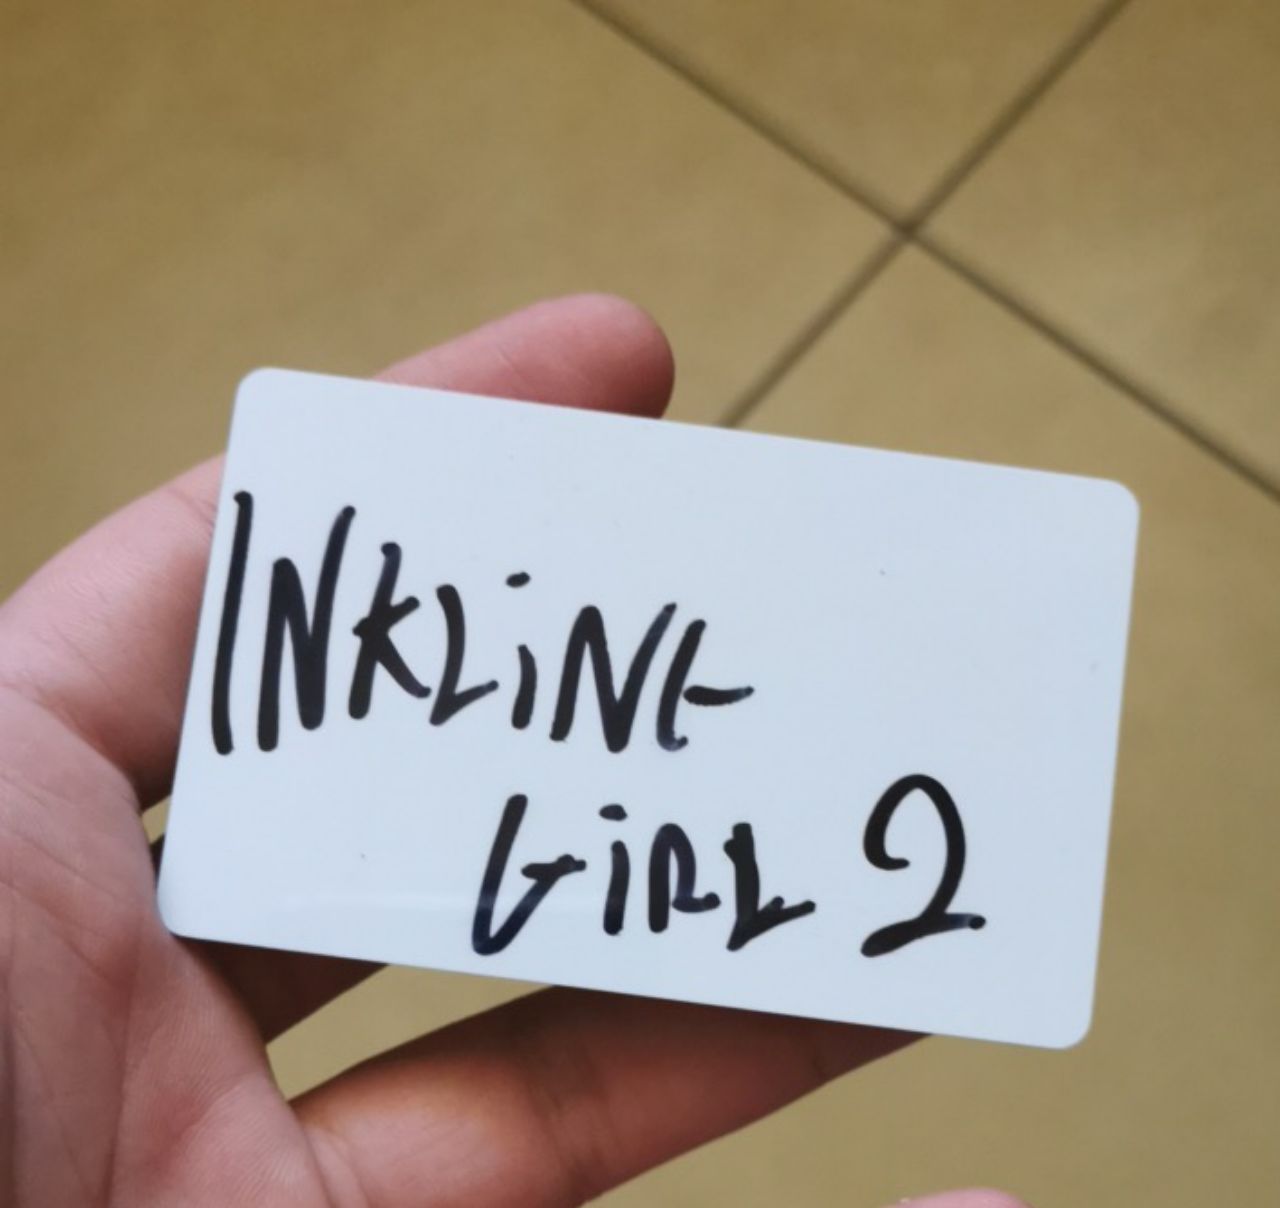 INKLiNG
GiRL 2